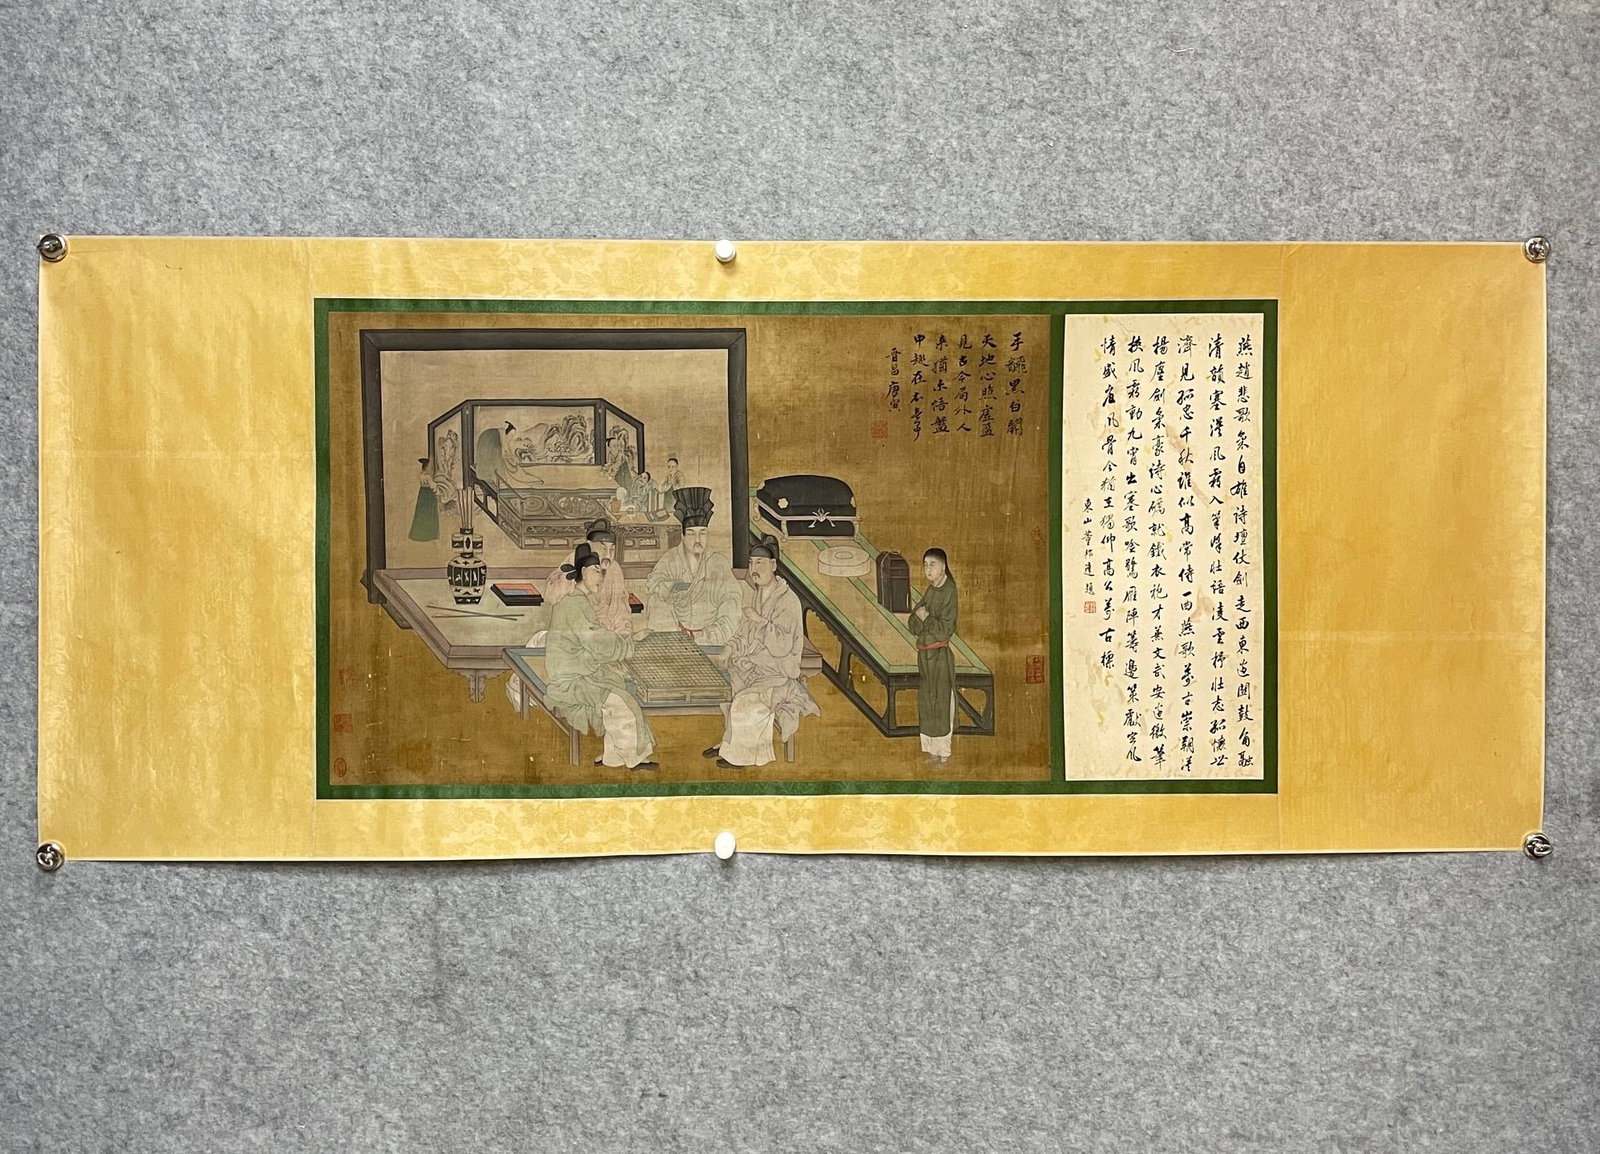 燕趙悲歌氣自雄詩壇仗劍走西東邊關鼓角融
清韻塞漠風霜入筆鋒壯語凌雲抒壯志孤懷
濟見孤忠千秋誰似高常侍一曲燕歌萬古崇朔漠
揚塵劍氣豪詩心礪就鐵衣袍才兼文武安邊徼筆
挾風霜動九霄出塞歌吟驚雁陣籌邊策獻
情盛唐風骨今猶在獨仰高公萬古標
東山董邦達題
手談黑白闢
天地心照虛盈
見古今局外人
來猶未悟盤
中趣在不言中
晉昌唐寅